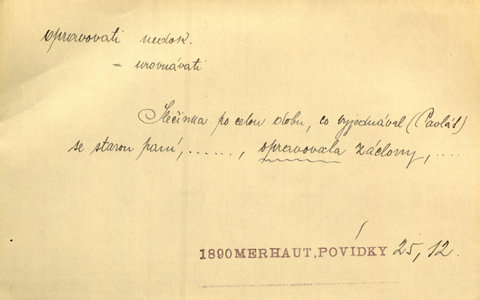 opravovati nedok.
= urovnávati
Slečinka po celou dobu, co vyjednával (Pavlát)
se starou paní, ....., opravovala záclony, ....
1890 MERHAUT, POVÍDKY 25, 12.